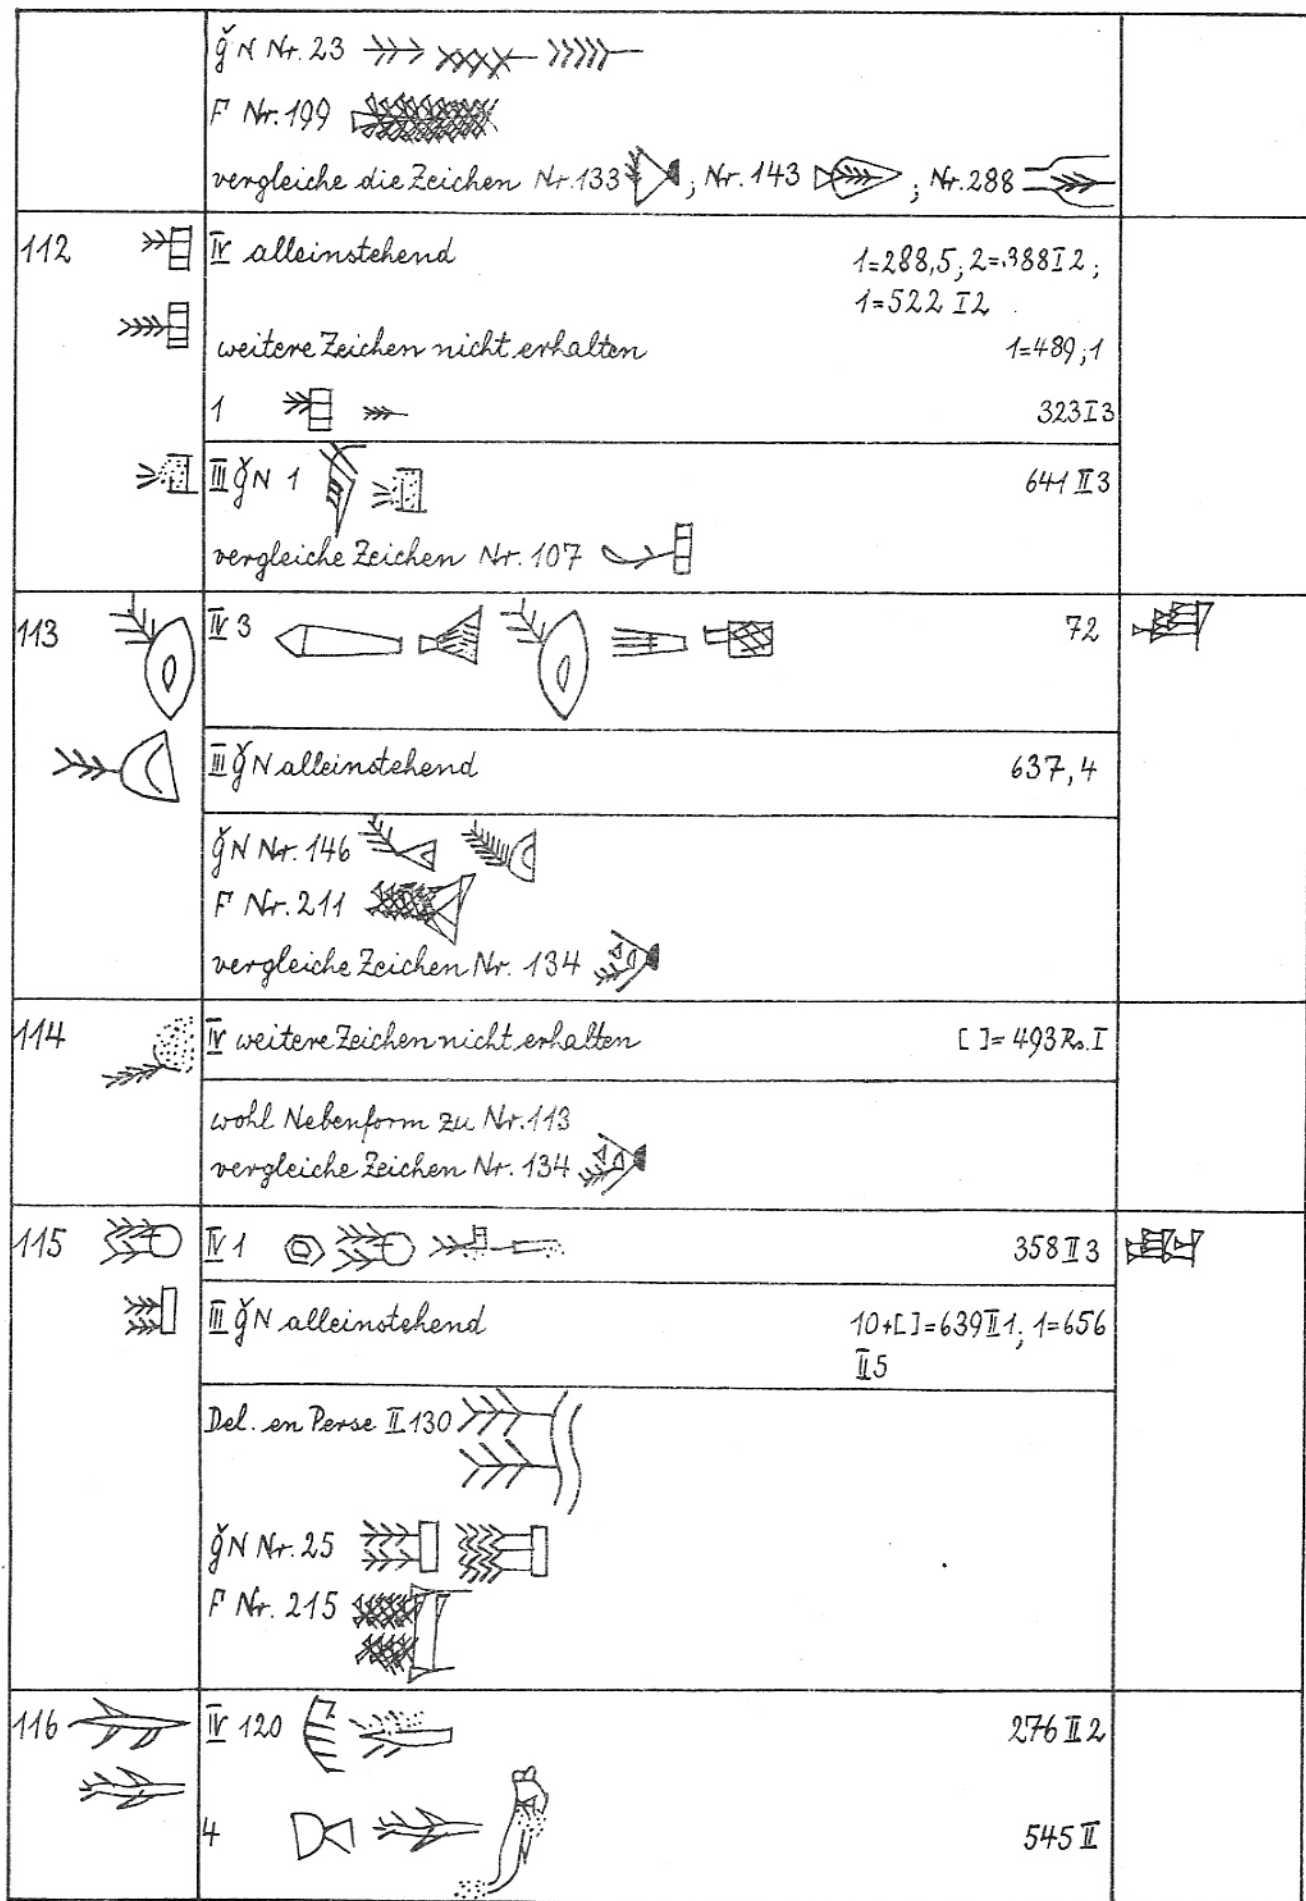 ǧN Nr. 23
F Nr. 199
vergleiche die Zeichen Nr. 133 ; Nr. 143 ; Nr. 288
112 IV alleinstehend 1=288,5; 2=388 I 2;
1=522 I 2
weitere Zeichen nicht erhalten 1=489;1
1 323 I 3
III ǧN 1 641 II 3
vergleiche Zeichen Nr. 107
113 IV 3 72
III ǧN alleinstehend 637,4
ǧN Nr. 146
F Nr. 211
vergleiche Zeichen Nr. 134
114 IV weitere Zeichen nicht erhalten [ ]=493 Rs. I
wohl Nebenform zu Nr. 113
vergleiche Zeichen Nr. 134
115 IV 1 358 II 3
III ǧN alleinstehend 10+[ ]=639 II 1; 1=656
II 5
Del. en Perse II 130
ǧN Nr. 25
F Nr. 215
116 IV 120 276 II 2
4 545 II